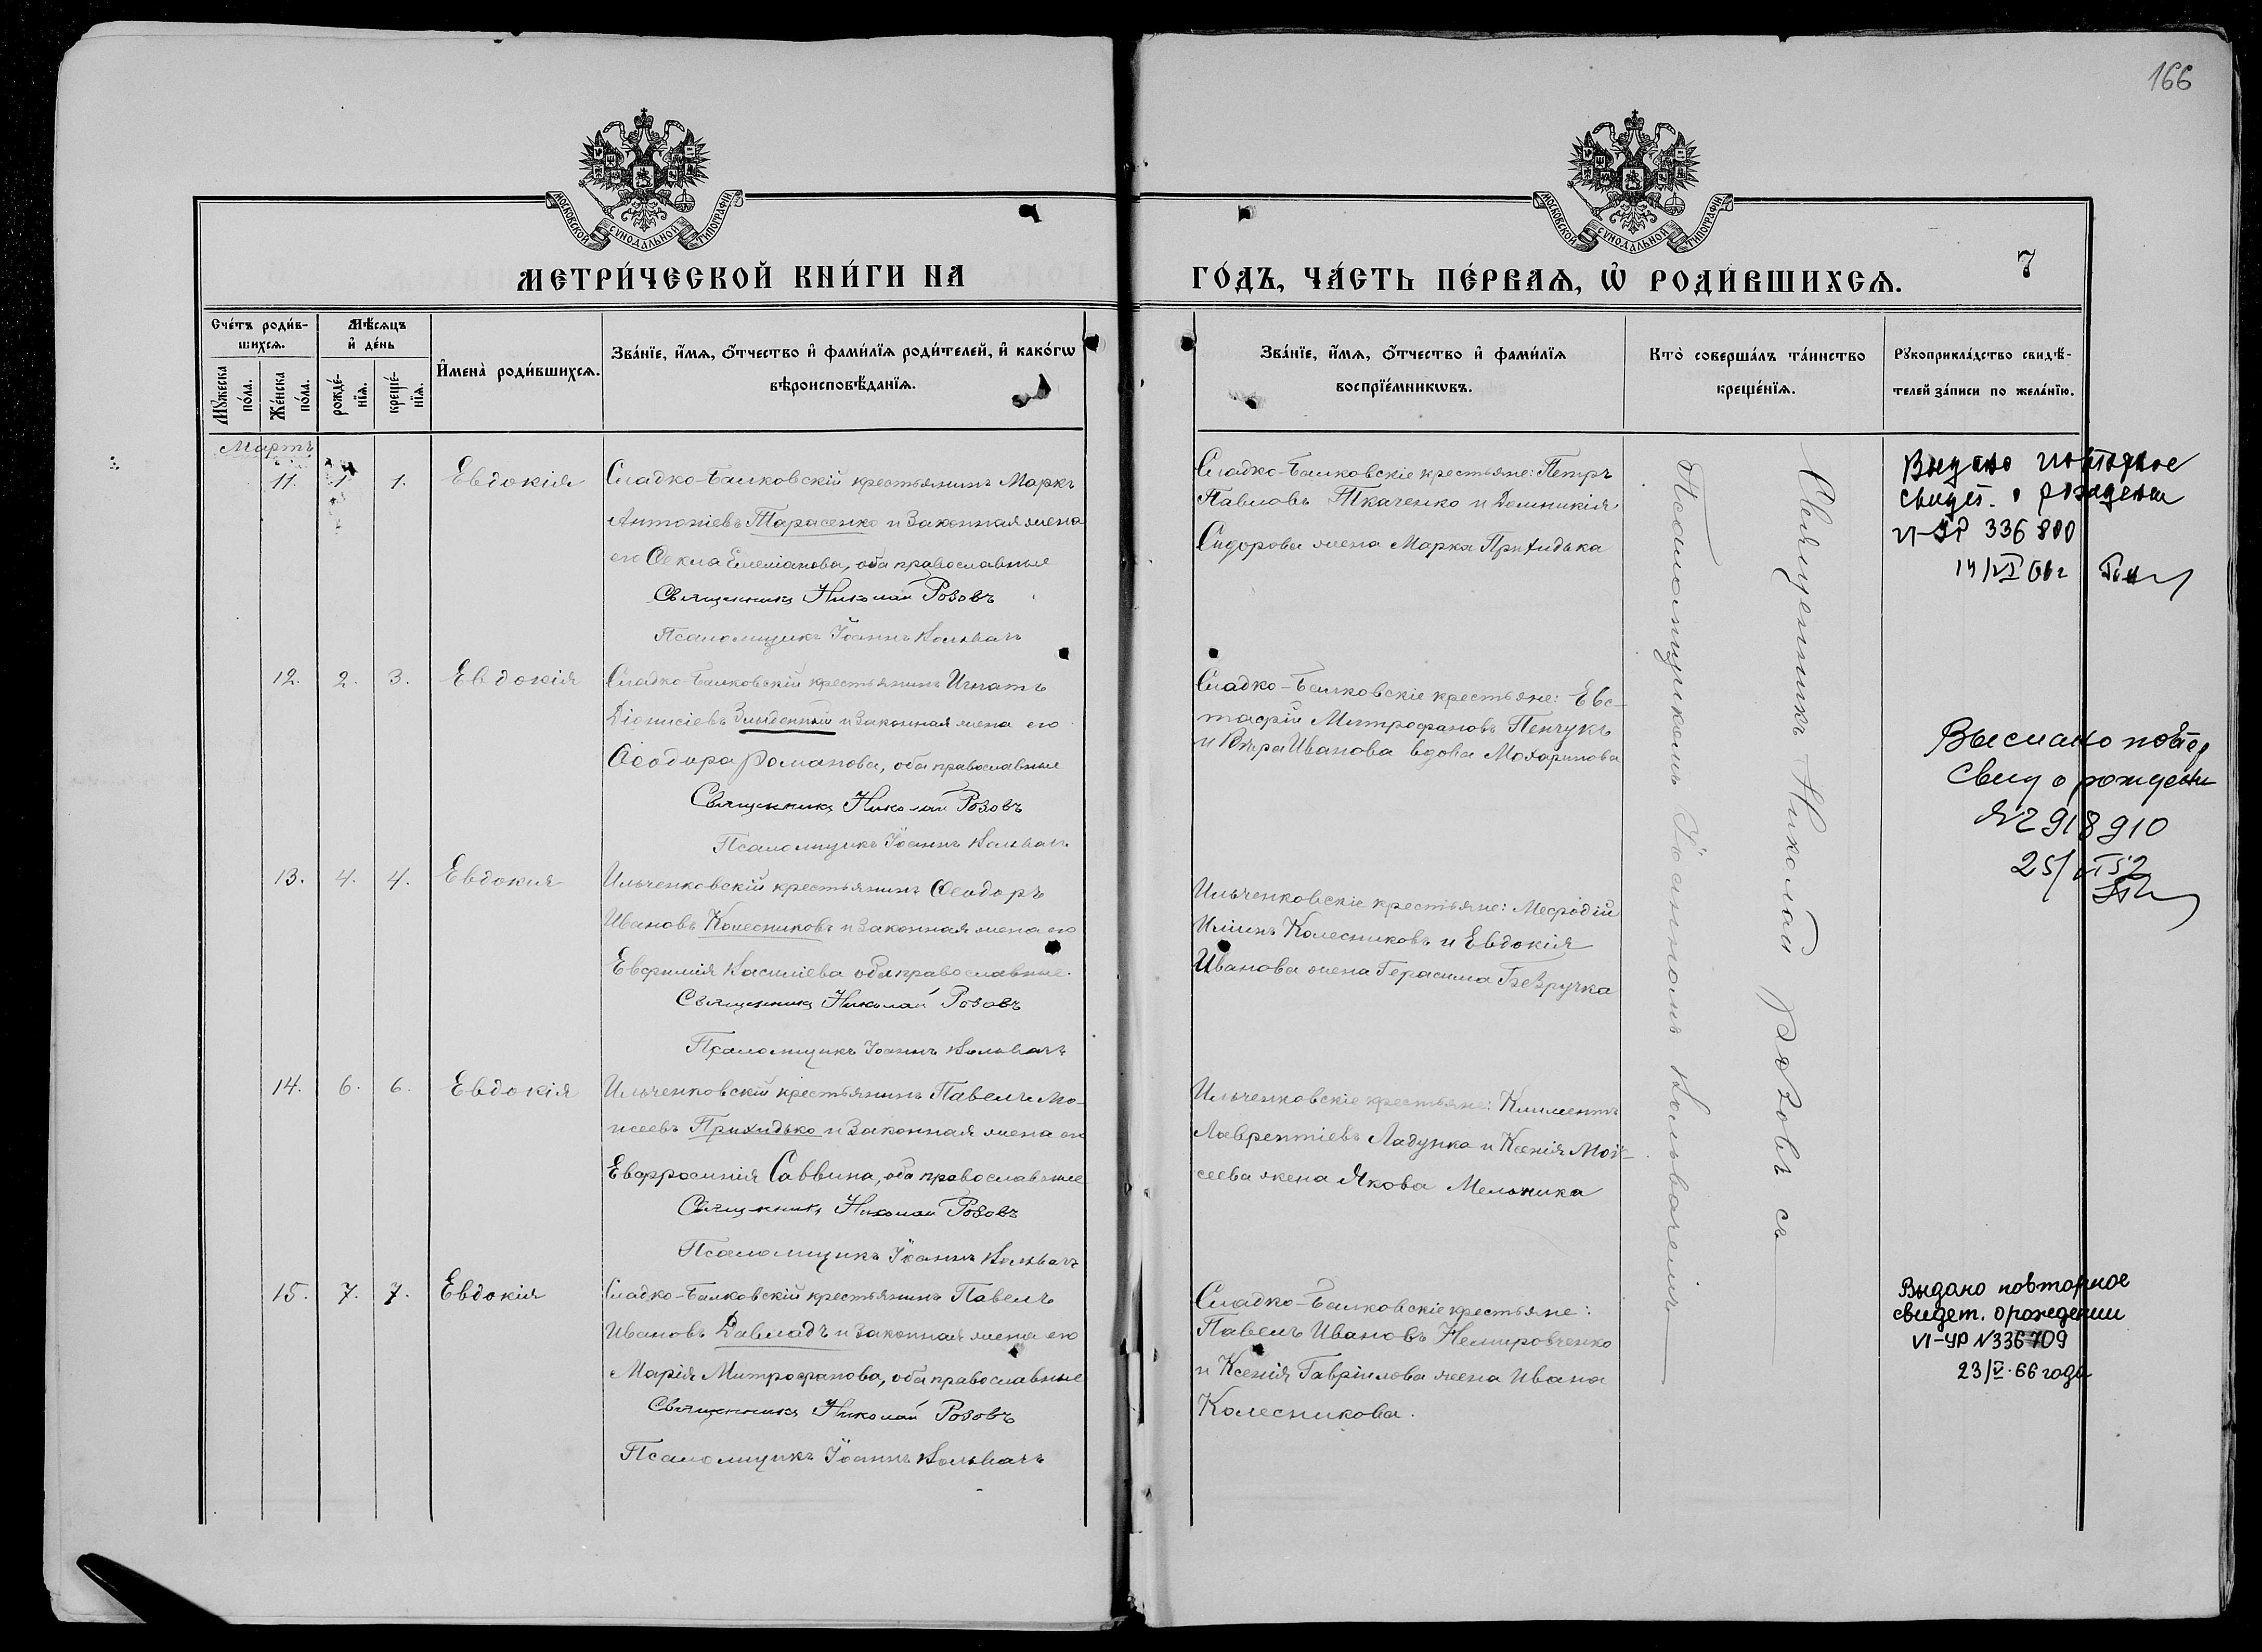 166
МОСКОВСКОЙ СѴНОДАЛЬНОЙ ТИПОГРАФІИ
МОСКОВСКОЙ СѴНОДАЛЬНОЙ ТИПОГРАФІИ
МЕТРИ́ЧЕСКОЙ КНИ́ГИ НА
ГО́ДЪ, ЧА́СТЬ ПЕ́РВАѦ, Ѡ҆ РОДИ́ВШИХСѦ.
7
Сче́тъ роди́в-
шихсѧ.
Мꙋ́жеска по́ла.
Же́нска по́ла.
Мѣ́сѧцъ
и҆ де́нь
рожде́-
нїѧ.
креще́-
нїѧ.
И҆мена̀ роди́вшихсѧ.
Зва́нїе, и҆́мѧ, ѻ҆́тчество и҆ фами́лїѧ роди́телей, и҆ како́гѡ
вѣроисповѣ́данїѧ.
Зва́нїе, и҆́мѧ, ѻ҆́тчество и҆ фами́лїѧ
воспрїе́мникѡвъ.
Кто̀ соверша́лъ та́инство
креще́нїѧ.
Рꙋкоприкла́дство свидѣ́-
телей за́писи по жела́нїю.
Мартъ
11. 1 1. Евдокія
Сладко-Балковскій крестьянинъ Маркъ
Антоніевъ Тарасенко и законная жена
его Ѳекла Емеліанова, оба православные
Священникъ Николай Розовъ
Псаломщикъ Іоаннъ Кальвачъ
Сладко-Балковскіе крестьяне: Петръ
Павловъ Ткаченко и Домникія
Сидорова жена Марка Прихидька
Выдано повторное
свидет. о рождении
VI-УР 336800
14/VI
12. 2. 3. Евдокія
Сладко-Балковскій крестьянинъ Игнатъ
Діонисіевъ и законная жена его
Ѳеодора Романова, оба православные
Священникъ Николай Розовъ
Псаломщикъ Іоаннъ Кальвачъ
Сладко-Балковскіе крестьяне: Евс-
тафій Митрофановъ Пенчукъ
и Вѣра Иванова вдова
Выслано повтор
Свид о рождении
№2918910
25/VI 52
13. 4. 4. Евдокия
Ильченковскій крестьянинъ Ѳеодоръ
Ивановъ Колесниковъ и законная жена его
Евфимія Василіева оба православные.
Священникъ Николай Розовъ
Псаломщикъ Іоаннъ Кальвачъ
Ильченковскіе крестьяне: Меѳодій
Иліинъ Колесниковъ и Евдокія
Иванова жена Герасима Безручка
14. 6. 6. Евдокія
Ильченковскій крестьянинъ Павелъ Мо-
исеевъ Прихидько и законная жена его
Евфросинія Саввина, оба православные
Священникъ Николай Розовъ
Псаломщикъ Іоаннъ Кальвачъ
Ильченковскіе крестьяне: Климентъ
Лаврентіевъ Ладунка и Ксенія Мои-
сеева жена Якова Мельника
15. 7. 7. Евдокія
Сладко-Балковскій крестьянинъ Павелъ
Ивановъ Давладъ и законная жена его
Марія Митрофанова, оба православные
Священникъ Николай Розовъ
Псаломщикъ Іоаннъ Кальвачъ
Сладко-Балковскіе крестьяне:
Павелъ Ивановъ Немировченко
и Ксенія Гавріилова жена Ивана
Колесникова.
Выдано повторное
свидет. о рождении
VI-УР N336709
23/V-66 года
Священникъ Николай Розовъ съ
Псаломщикомъ Іоанномъ Кальвачемъ